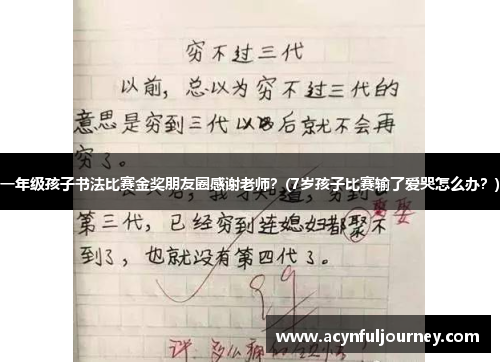 穷不过三代
以前，总以为穷不过三代的
意思是穷到三代以后就不会再
穷了。
一年级孩子书法比赛金奖朋友圈感谢老师？(7岁孩子比赛输了爱哭怎么办？)
第三代，已经穷到连媳妇都聚不
娶
到了，也就没有第四代了。
评：多么痛的
www.acynfuljourney.com